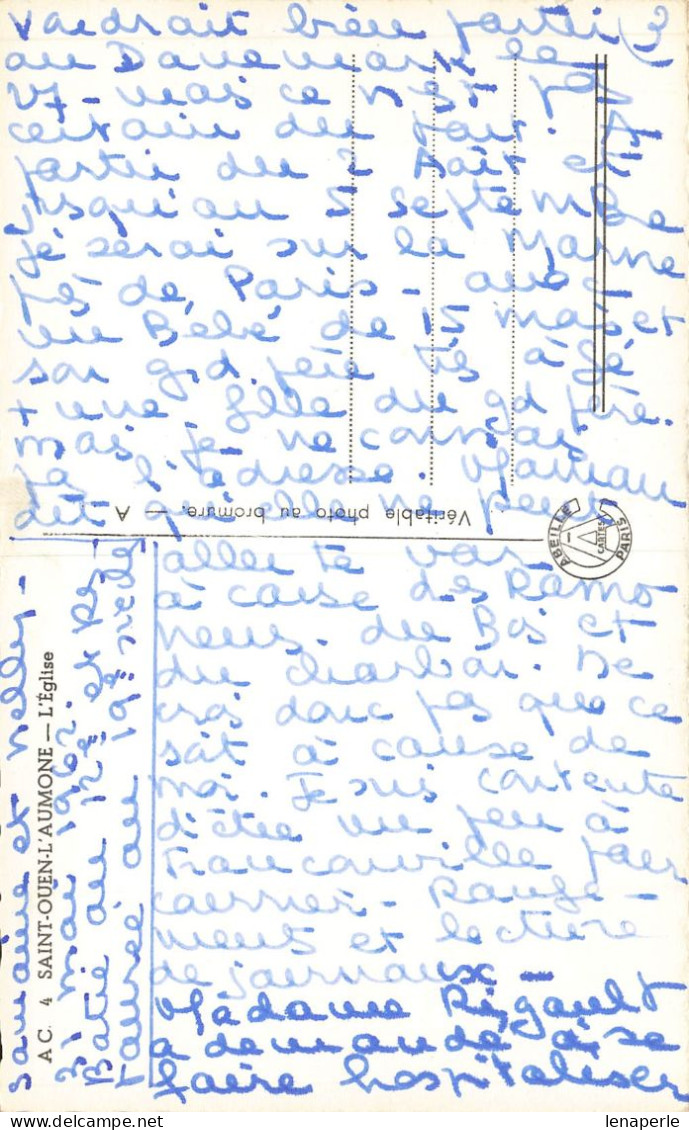 vaudrait bien partir (3
au Danemark le
27 - mais ce n'est pas
certain du tout. A
partir du 2 Août et
jusqu'au 5 septembre
je serai sur la Marne
près de Paris - avec
un Bébé de 15 mois et
son gd. père très âgé
+ une fille du gd père.
mais je ne connais
pas l'adresse. Maman
dit qu'elle ne peut
Véritable photo au bromure. — A
ABEILLE CARTES PARIS
aller te voir
à cause des Ramo
neurs. du Bois et
du charbon. Ne
crois donc pas que ce
soit à cause de
moi. Je suis contente
d'être un peu à
Franconville pour
courrier - Range-
ments et lecture
de journaux -
Madame Rigault
a demandé à se
faire hospitaliser
et Nelly -
AC. 4 SAINT-OUEN-L'AUMONE — L'Église
31 mai 1962.
Batie au 12e et Res-
taurée au 19e siècle
© lenaperle